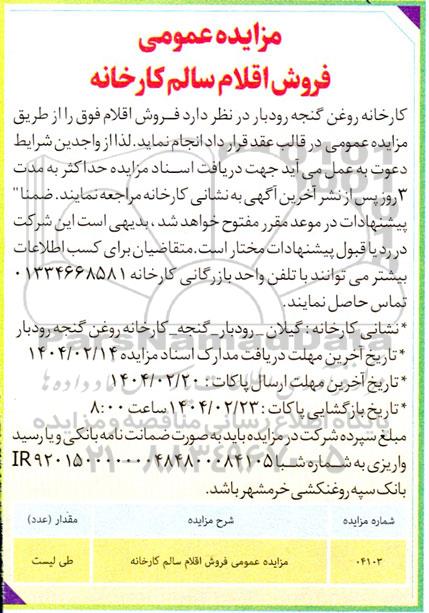 مزایده عمومی
فروش اقلام سالم کارخانه
کارخانه روغن گنجه رودبار در نظر دارد فـروش اقلام فوق را از طریق
مزایده عمومی در قالب عقد قرار داد انجام نماید.لذا از واجدین شرایط
دعوت به عمل می آید جهت دریافت اسـناد مزایده حداکثر به مدت
۳روز پس از نشر آخرین آگهی به نشانی کارخانه مراجعه نمایند. ضمنا"
پیشنهادات در موعد مقرر مفتوح خواهد شد ، بدیهی است این شرکت
در رد یا قبول پیشنهادات مختار است.متقاضیان برای کسب اطلاعات
بیشتر می توانند با تلفن واحد بازرگانی کارخانه ۰۱۳۳۴۶۶۸۵۸۱
تماس حاصل نمایند.
*نشانی کارخانه : گیلان _رودبار_گنجه_کارخانه روغن گنجه رودبار
* تاریخ آخرین مهلت دریافت مدارک اسناد مزایده ۱۴۰۴/۰۲/۱۴
*تاریخ آخرین مهلت ارسال پاکات : ۱۴۰۴/۰۲/۲۰
*تاریخ بازگشایی پاکات : ۱۴۰۴/۰۲/۲۳ ساعت ۸:۰۰
مبلغ سپرده شرکت در مزایده باید به صورت ضمانت نامه بانکی و یا رسید
واریزی به شـماره شـبا
بانک سپه روغنکشی خرمشهر باشد.
شماره مزایده شرح مزایده مقدار (عدد)
۰۴۱۰۳ مزایده عمومی فروش اقلام سالم کارخانه طی لیست
ParsNamadData